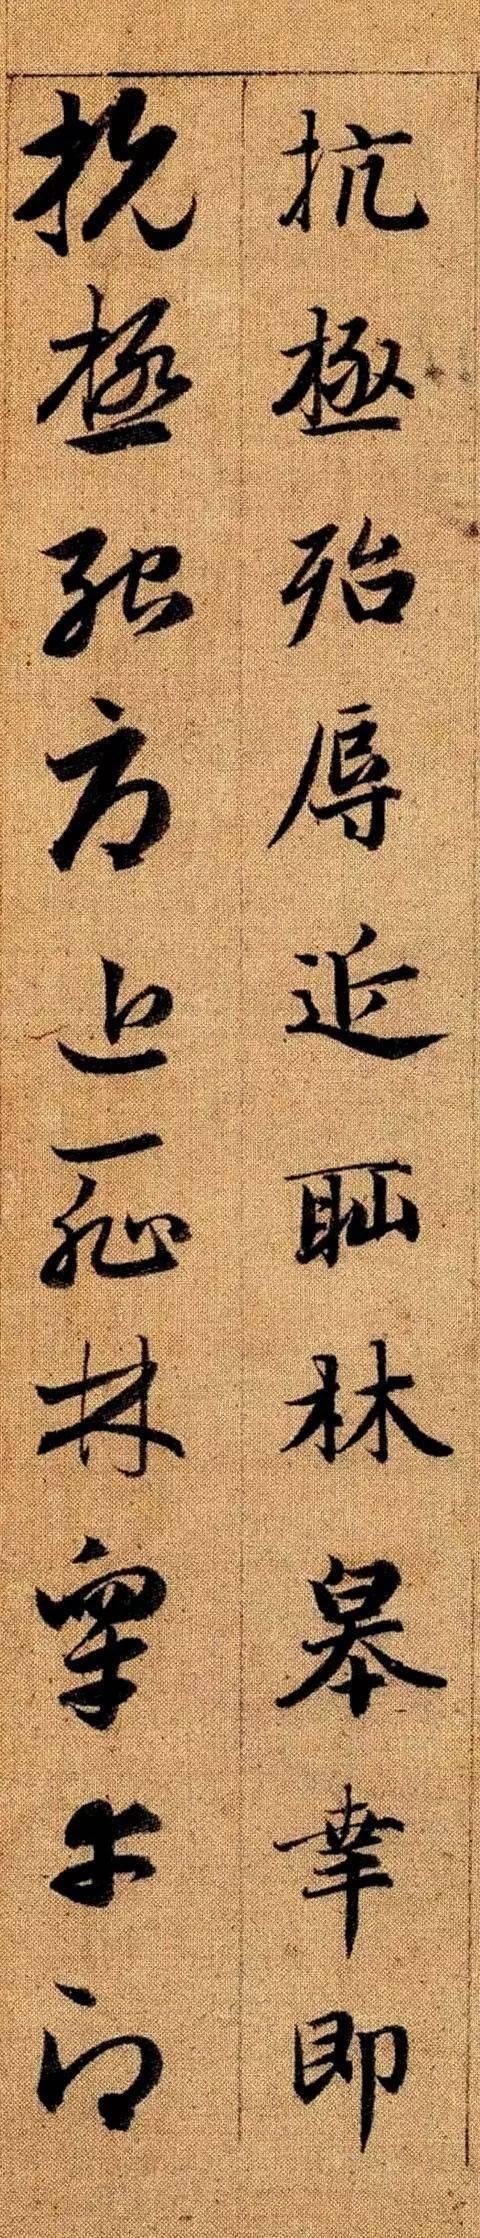 抗極殆辱近耻林皋幸即
抗極殆辱近恥林皋幸即